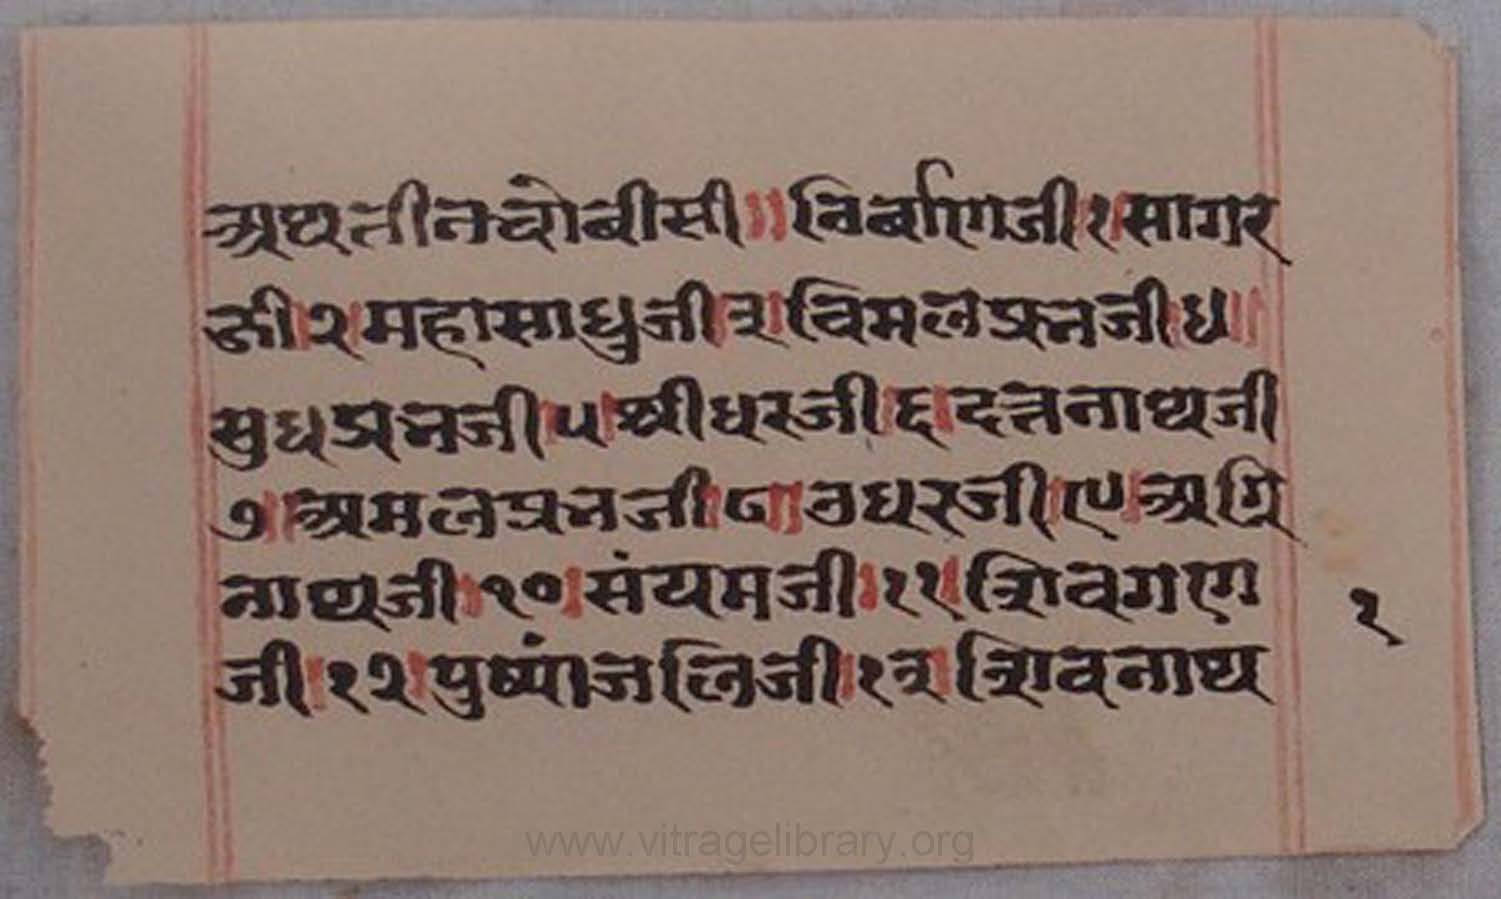 अथतीतचोबीसी॥निर्बाणजी१सागर
जी।२।महासाधुजी।३।विमलप्रभजी।४॥
सुधप्रभजी।५।श्रीधरजी।६।दत्तनाथजी
७।अमलप्रभजी।८।उधरजी।९।अग्नि
नाथजी।१०।संयमजी।११।शिवगण
जी।१२।पुष्पांजलिजी।१३।शिवनाथ
१
www.vitragelibrary.org